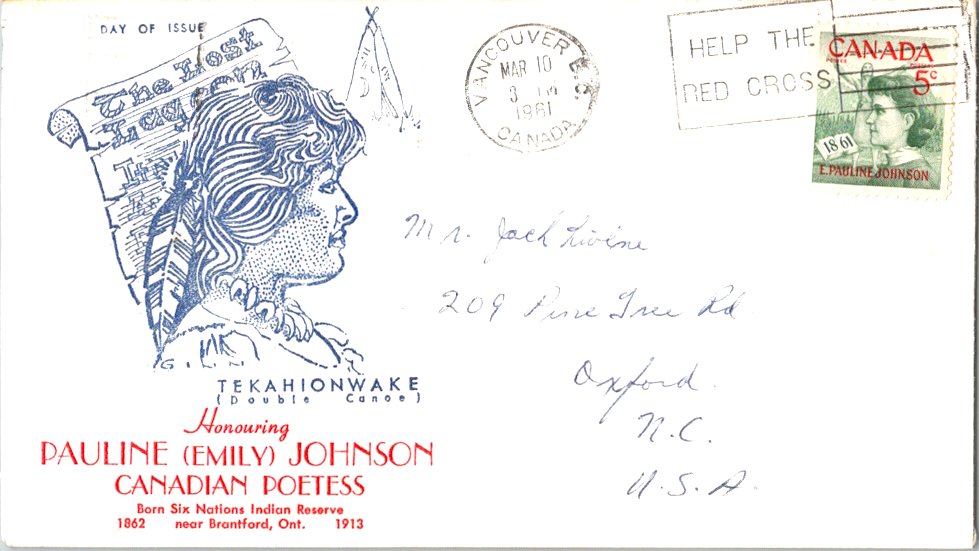 DAY OF ISSUE
The Lost
Lagoon
VANCOUVER B.C.
MAR 10
3 PM
1961
CANADA
HELP THE
RED CROSS
CANADA
POSTES POSTAGE
5c
1861
E. PAULINE JOHNSON
Mr. Jack Livine
209 Pine Tree Rd
Oxford.
N.C.
U.S.A.
TEKAHIONWAKE
(Double Canoe)
Honouring
PAULINE (EMILY) JOHNSON
CANADIAN POETESS
Born Six Nations Indian Reserve
1862 near Brantford, Ont. 1913